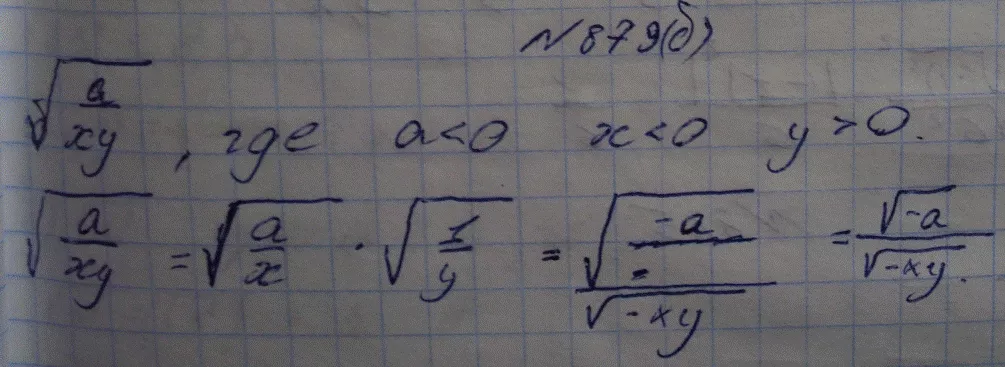 №879(б)
√(a/(xy)), где a<0 x<0 y>0.
√(a/(xy)) = √(a/x) · √(1/y) = √(-a/-)/√(-xy) = √(-a)/√(-xy).